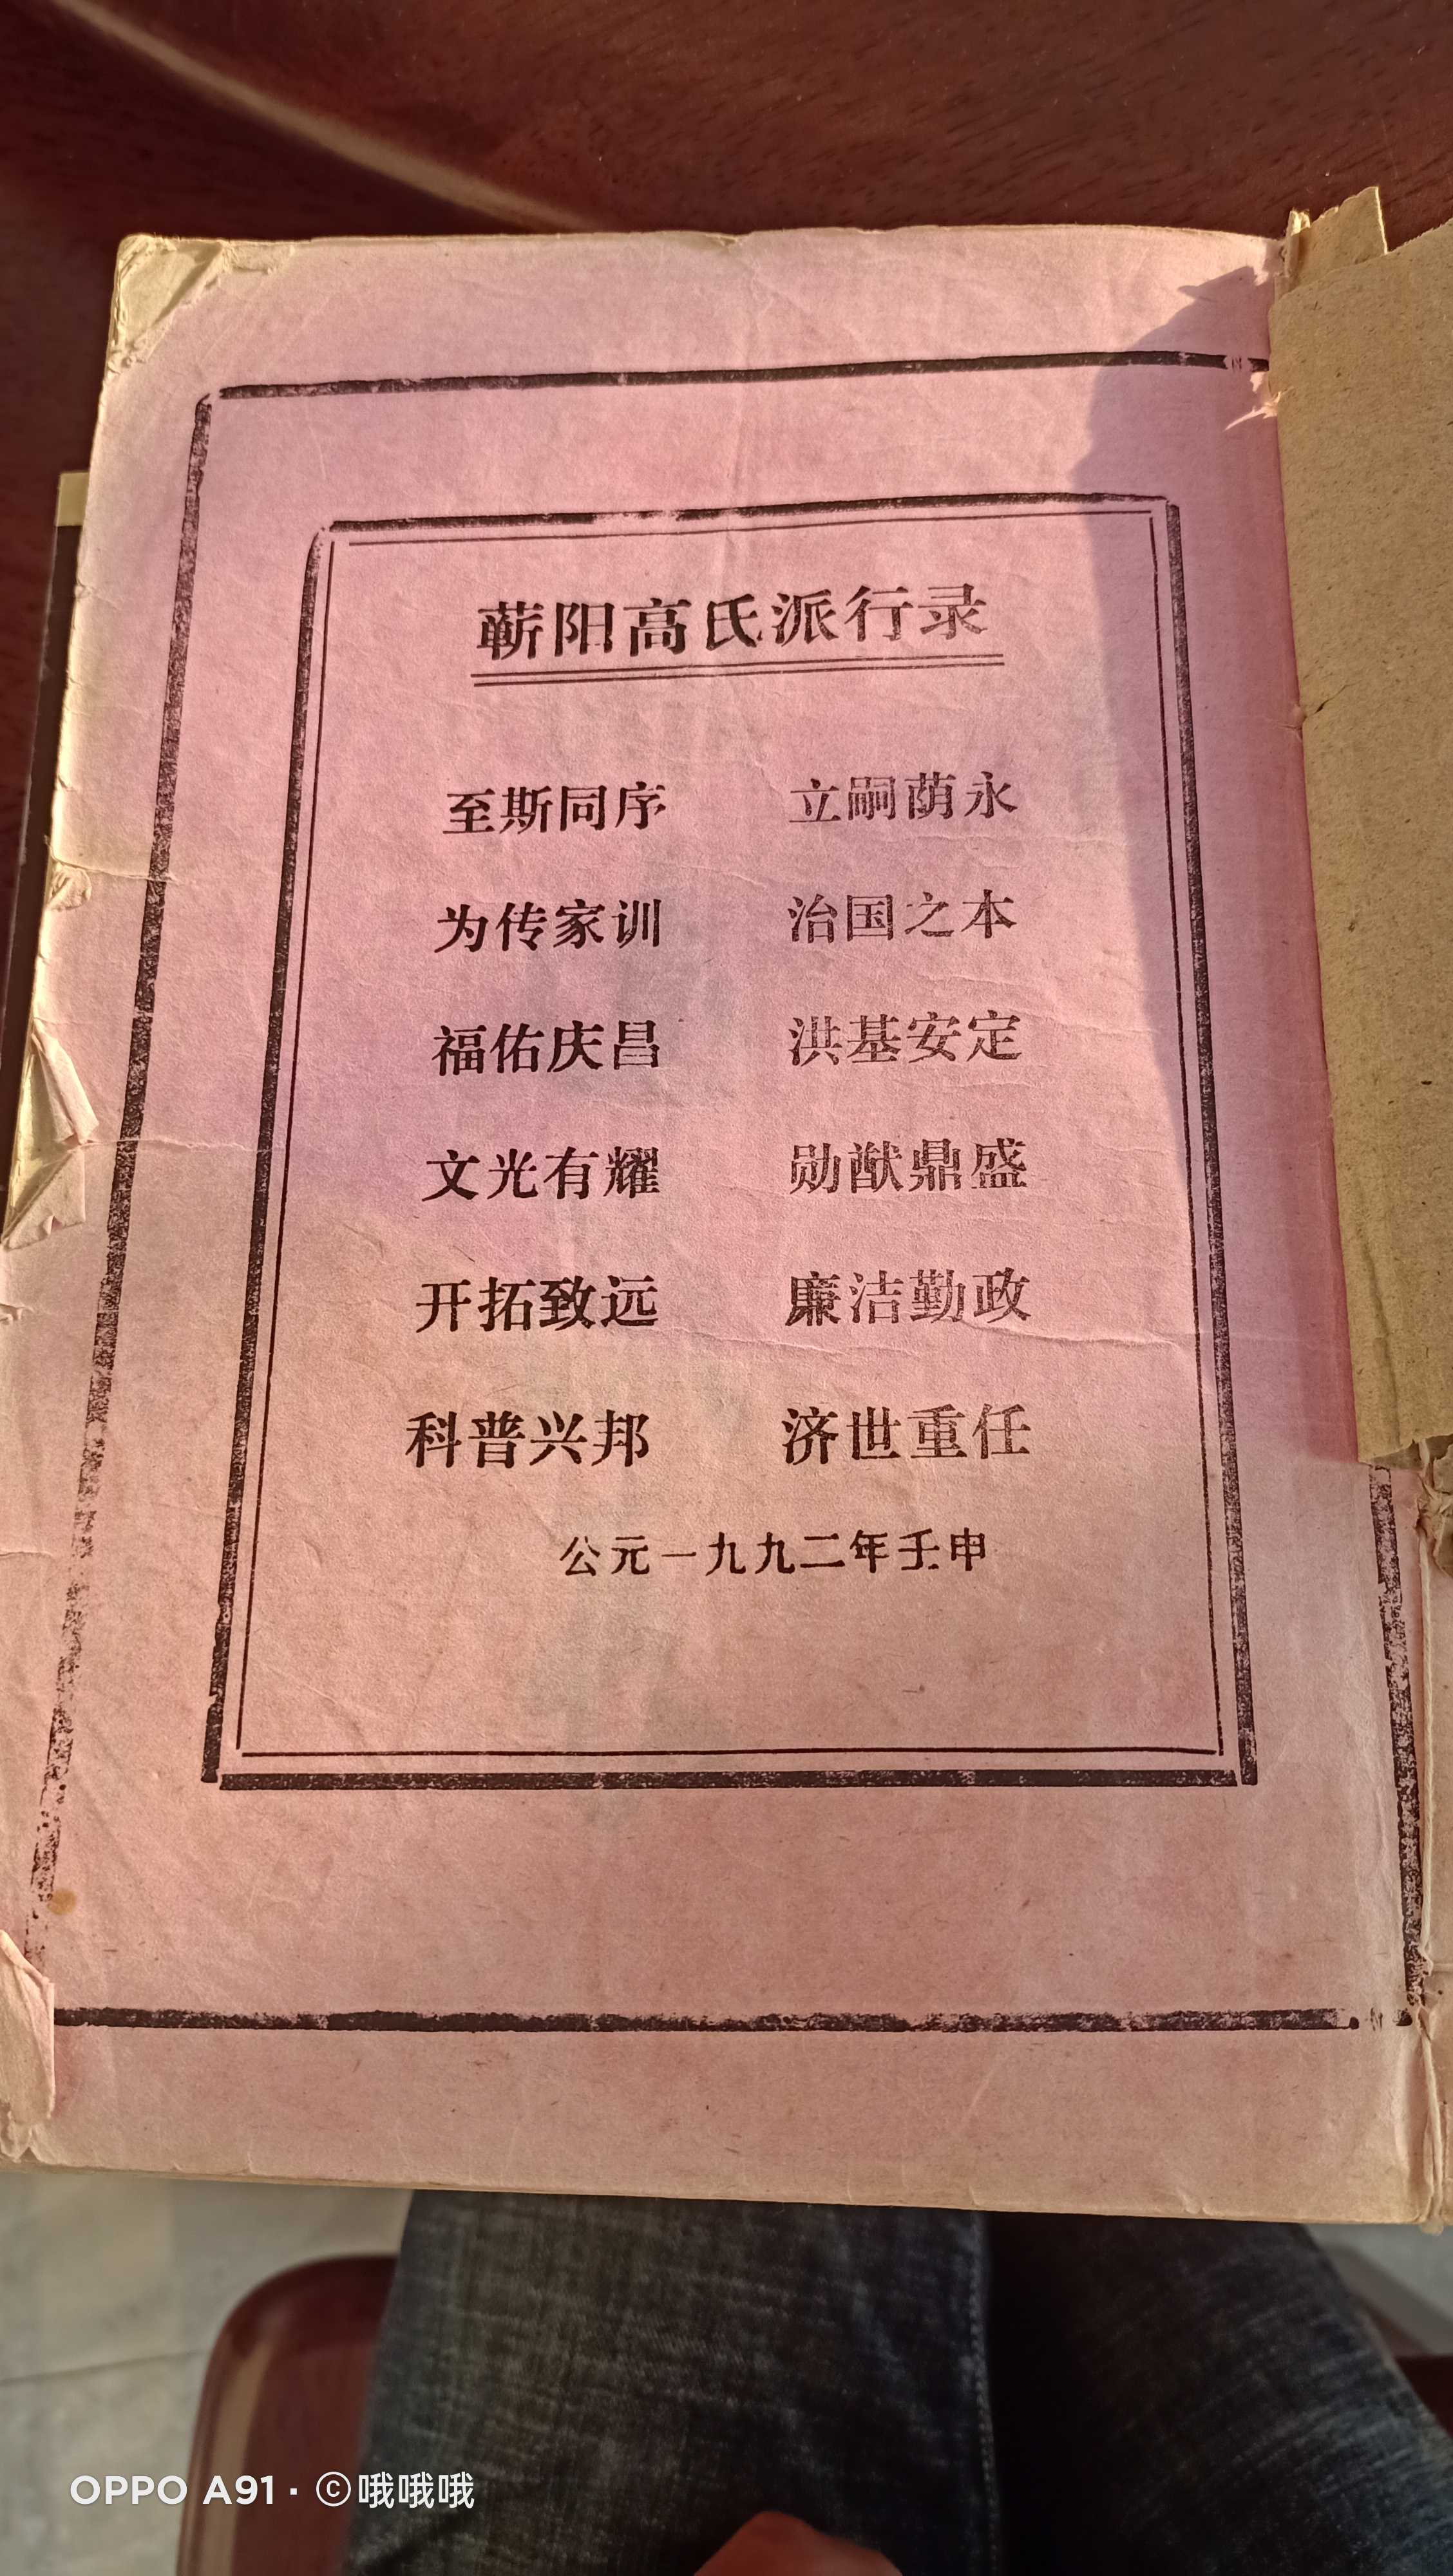 蕲阳高氏派行录
至斯同序 立嗣荫永
为传家训 治国之本
福佑庆昌 洪基安定
文光有耀 勋猷鼎盛
开拓致远 廉洁勤政
科普兴邦 济世重任
公元一九九二年壬申
OPPO A91 · ©哦哦哦